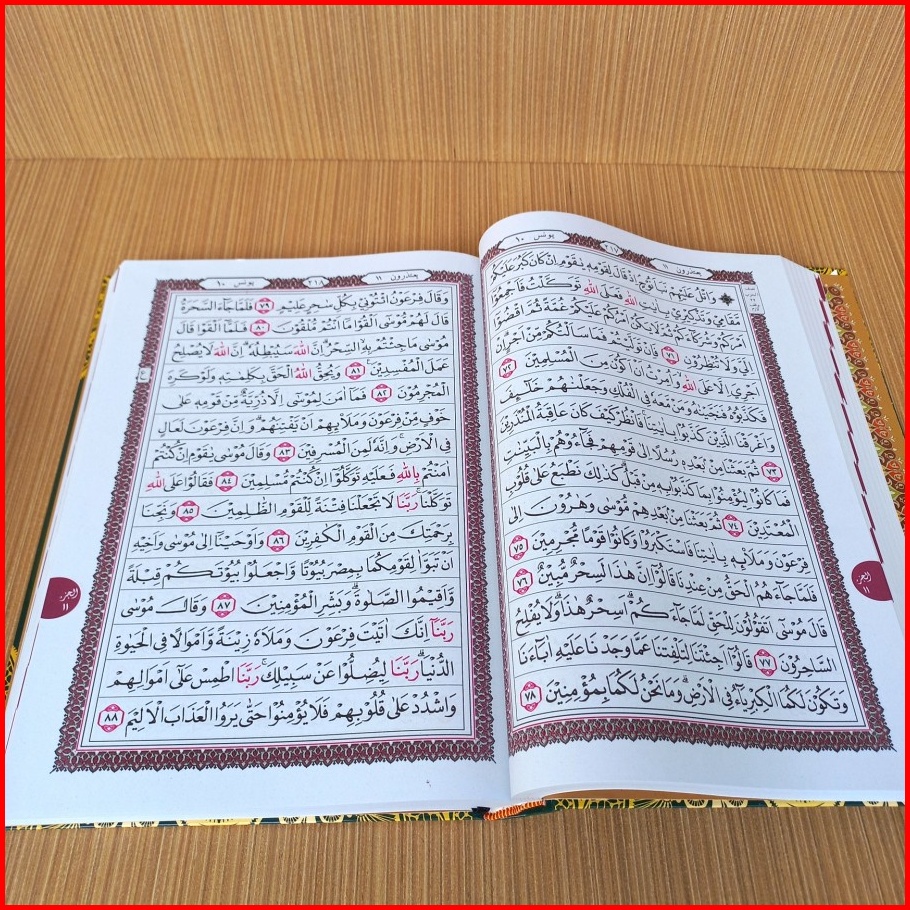 يعتذرون ١١ ٢١٧ يونس ١٠
وَاتْلُ عَلَيْهِمْ نَبَاَ نُوحٍ اِذْ قَالَ لِقَوْمِهٖ يٰقَوْمِ اِنْ كَانَ كَبُرَ عَلَيْكُمْ
مَقَامِيْ وَتَذْكِيْرِيْ بِاٰيٰتِ اللهِ فَعَلَى اللهِ تَوَكَّلْتُ فَاَجْمِعُوْٓا
اَمْرَكُمْ وَشُرَكَآءَكُمْ ثُمَّ لَا يَكُنْ اَمْرُكُمْ عَلَيْكُمْ غُمَّةً ثُمَّ اقْضُوْٓا
اِلَيَّ وَلَا تُنْظِرُوْنِ ٧١ فَاِنْ تَوَلَّيْتُمْ فَمَا سَاَلْتُكُمْ مِّنْ اَجْرٍ اِنْ
اَجْرِيَ اِلَّا عَلَى اللهِ وَاُمِرْتُ اَنْ اَكُوْنَ مِنَ الْمُسْلِمِيْنَ ٧٢
فَكَذَّبُوْهُ فَنَجَّيْنٰهُ وَمَنْ مَّعَهٗ فِى الْفُلْكِ وَجَعَلْنٰهُمْ خَلٰٓئِفَ
وَاَغْرَقْنَا الَّذِيْنَ كَذَّبُوْا بِاٰيٰتِنَا فَانْظُرْ كَيْفَ كَانَ عَاقِبَةُ الْمُنْذَرِيْنَ
٧٣ ثُمَّ بَعَثْنَا مِنْۢ بَعْدِهٖ رُسُلًا اِلٰى قَوْمِهِمْ فَجَآءُوْهُمْ بِالْبَيِّنٰتِ
فَمَا كَانُوْا لِيُؤْمِنُوْا بِمَا كَذَّبُوْا بِهٖ مِنْ قَبْلُ كَذٰلِكَ نَطْبَعُ عَلٰى قُلُوْبِ
الْمُعْتَدِيْنَ ٧٤ ثُمَّ بَعَثْنَا مِنْۢ بَعْدِهِمْ مُّوْسٰى وَهٰرُوْنَ اِلٰى
فِرْعَوْنَ وَمَلَا۟ئِهٖ بِاٰيٰتِنَا فَاسْتَكْبَرُوْا وَكَانُوْا قَوْمًا مُّجْرِمِيْنَ ٧٥
فَلَمَّا جَآءَهُمُ الْحَقُّ مِنْ عِنْدِنَا قَالُوْٓا اِنَّ هٰذَا لَسِحْرٌ مُّبِيْنٌ ٧٦
قَالَ مُوْسٰٓى اَتَقُوْلُوْنَ لِلْحَقِّ لَمَّا جَآءَكُمْ اَسِحْرٌ هٰذَا وَلَا يُفْلِحُ
السّٰحِرُوْنَ ٧٧ قَالُوْٓا اَجِئْتَنَا لِتَلْفِتَنَا عَمَّا وَجَدْنَا عَلَيْهِ اٰبَآءَنَا
وَتَكُوْنَ لَكُمَا الْكِبْرِيَآءُ فِى الْاَرْضِ وَمَا نَحْنُ لَكُمَا بِمُؤْمِنِيْنَ ٧٨
الجزء
١١
يعتذرون ١١ ٢١٨ يونس ١٠
وَقَالَ فِرْعَوْنُ ائْتُوْنِيْ بِكُلِّ سٰحِرٍ عَلِيْمٍ ٧٩ فَلَمَّا جَآءَ السَّحَرَةُ
قَالَ لَهُمْ مُّوْسٰٓى اَلْقُوْا مَآ اَنْتُمْ مُّلْقُوْنَ ٨٠ فَلَمَّآ اَلْقَوْا قَالَ
مُوْسٰى مَا جِئْتُمْ بِهِ السِّحْرُ اِنَّ اللهَ سَيُبْطِلُهٗ اِنَّ اللهَ لَا يُصْلِحُ
عَمَلَ الْمُفْسِدِيْنَ ٨١ وَيُحِقُّ اللهُ الْحَقَّ بِكَلِمٰتِهٖ وَلَوْ كَرِهَ
الْمُجْرِمُوْنَ ٨٢ فَمَآ اٰمَنَ لِمُوْسٰٓى اِلَّا ذُرِّيَّةٌ مِّنْ قَوْمِهٖ عَلٰى
خَوْفٍ مِّنْ فِرْعَوْنَ وَمَلَا۟ئِهِمْ اَنْ يَّفْتِنَهُمْ وَاِنَّ فِرْعَوْنَ لَعَالٍ
فِى الْاَرْضِ وَاِنَّهٗ لَمِنَ الْمُسْرِفِيْنَ ٨٣ وَقَالَ مُوْسٰى يٰقَوْمِ اِنْ كُنْتُمْ
اٰمَنْتُمْ بِاللهِ فَعَلَيْهِ تَوَكَّلُوْٓا اِنْ كُنْتُمْ مُّسْلِمِيْنَ ٨٤ فَقَالُوْا عَلَى اللهِ
تَوَكَّلْنَا رَبَّنَا لَا تَجْعَلْنَا فِتْنَةً لِّلْقَوْمِ الظّٰلِمِيْنَ ٨٥ وَنَجِّنَا
بِرَحْمَتِكَ مِنَ الْقَوْمِ الْكٰفِرِيْنَ ٨٦ وَاَوْحَيْنَآ اِلٰى مُوْسٰى وَاَخِيْهِ
اَنْ تَبَوَّاٰ لِقَوْمِكُمَا بِمِصْرَ بُيُوْتًا وَّاجْعَلُوْا بُيُوْتَكُمْ قِبْلَةً
وَّاَقِيْمُوا الصَّلٰوةَ وَبَشِّرِ الْمُؤْمِنِيْنَ ٨٧ وَقَالَ مُوْسٰى
رَبَّنَآ اِنَّكَ اٰتَيْتَ فِرْعَوْنَ وَمَلَاَهٗ زِيْنَةً وَّاَمْوَالًا فِى الْحَيٰوةِ
الدُّنْيَا رَبَّنَا لِيُضِلُّوْا عَنْ سَبِيْلِكَ رَبَّنَا اطْمِسْ عَلٰٓى اَمْوَالِهِمْ
وَاشْدُدْ عَلٰى قُلُوْبِهِمْ فَلَا يُؤْمِنُوْا حَتّٰى يَرَوُا الْعَذَابَ الْاَلِيْمَ ٨٨
الجزء
١١